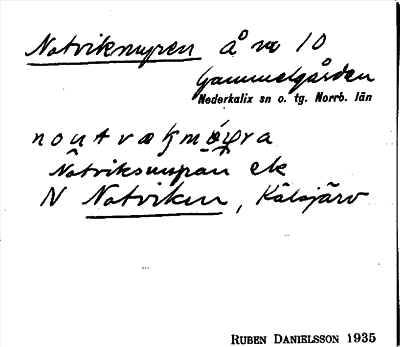 Notviknupen å nr 10
Gammelgården
Nederkalix sn o. tg. Norrb. län
Notviksnupan ek
N Notviken, Kälsjärv
RUBEN DANIELSSON 1935